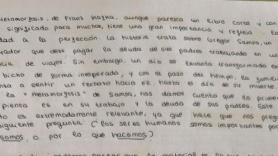 Metamorfosis, de Franz Kafka, aunque parezca un libro corto y con
significado para muchos, tiene una gran importancia y refleja
dad a la perfección. La historia trata sobre Gregor Samsa, un
jador que debe pagar la deuda de sus padres trabajando en un
de viajes. Sin embargo, un día se levanta transformado en
bicho de forma inesperada, y con el paso del tiempo, la
a sentir un rechazo hacia él hasta el día de su muerte.
la "metamorfosis" de Samsa, nos damos cuenta que lo primero
piensa es en su trabajo y la deuda de sus padres. Este
es extremadamente relevante, ya que hace que nos
siguiente pregunta: ¿los seres humanos somos importantes por
somos o por lo que hacemos?